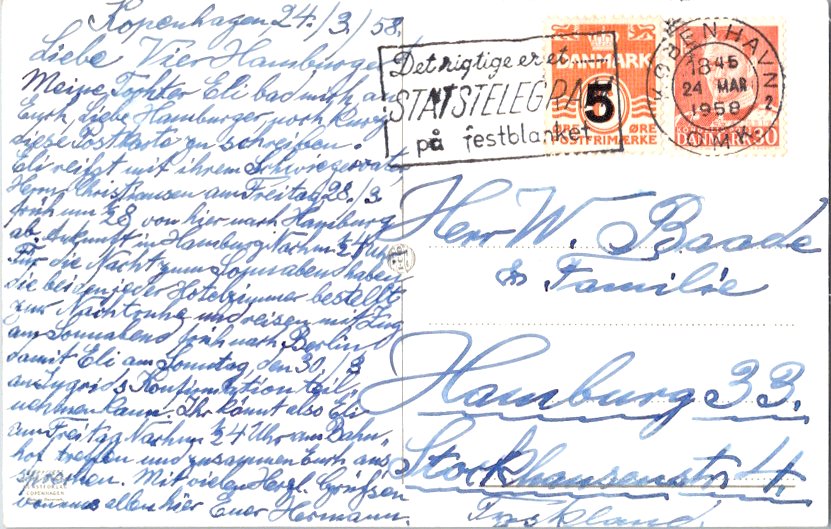 Kopenhagen 24./3./58.
Liebe Vier Hamburger!
Meine Tochter Eli bad mich an
Euch, Liebe Hamburger, noch kurz
diese Postkarte zu schreiben.
Eli reist mit ihrem Schwiegervater
Herrn Christhansen am Freitag 28./3.
früh um 28 von hier nach Hamburg
ab. Ankunft in Hamburg Nachm ½4 Uhr
Für die Nacht zum Sonnabend haben
die beiden jeder Hotelzimmer bestellt
zur Nachtruhe und reisen mit Zug
am Sonnabend früh nach Berlin
damit Eli am Sonntag, den 30./3
an Ingrids Konfirmation teil,
nehmen kann. Ihr könnt also Eli
am Freitag Nachm ½4 Uhr am Bahn,,
hof treffen und zusammen Euch aus
Mit vielen Herzl. Grüssen
von uns allen hier Euer Hermann.
Det rigtige er et
STATSTELEGRAM
på festblanket
DANMARK
5
ØRE
POSTFRIMÆRKE
KØBENHAVN
1845
24 MAR
1958
2
OMK.
DANMARK 30
Herr W. Baade
& Familie
Hamburg 33.
Stockhausenstr. 4,
Tyskland.
COPENHAGEN